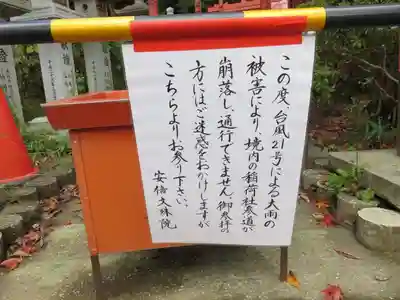 この度、台風21号による大雨の
被害により、境内の稲荷社参道が
崩落し、通行できません。御参拝の
方にはご迷惑をおかけしますが
こちらよりお参り下さい。
安倍文殊院